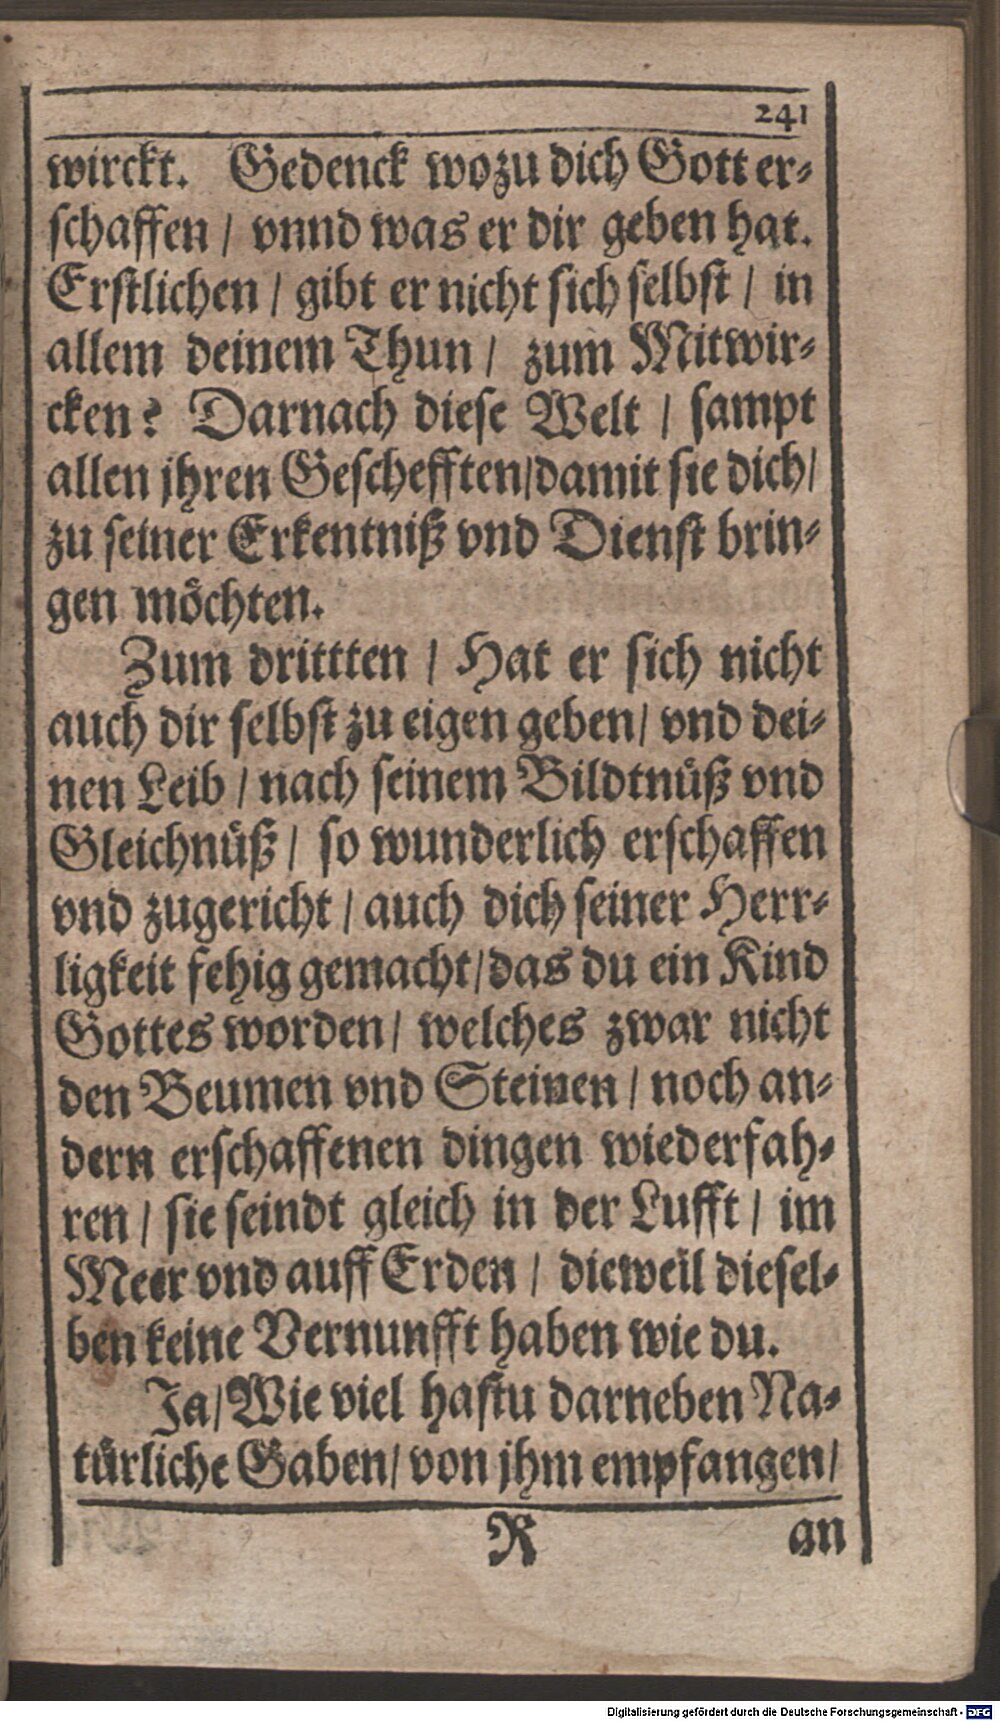 241
wirckt. Gedenck wozu dich Gott er-
schaffen / vnnd was er dir geben hat.
Erstlichen / gibt er nicht sich selbst / in
allem deinem Thun / zum Mitwir-
cken? Darnach diese Welt / sampt
allen jhren Geschefften/damit sie dich/
zu seiner Erkentniß vnd Dienst brin-
gen möchten.
Zum drittten / Hat er sich nicht
auch dir selbst zu eigen geben/ vnd dei-
nen Leib / nach seinem Bildtnüß vnd
Gleichnüß / so wunderlich erschaffen
vnd zugericht / auch dich seiner Herr-
ligkeit fehig gemacht/das du ein Kind
Gottes worden/ welches zwar nicht
den Beumen vnd Steinen / noch an-
dern erschaffenen dingen wiederfah-
ren / sie seindt gleich in der Lufft / im
Meer vnd auff Erden / dieweil diesel-
ben keine Vernunfft haben wie du.
Ja/Wie viel hastu darneben Na-
türliche Gaben/ von jhm empfangen/
R an
Digitalisierung gefördert durch die Deutsche Forschungsgemeinschaft - DFG